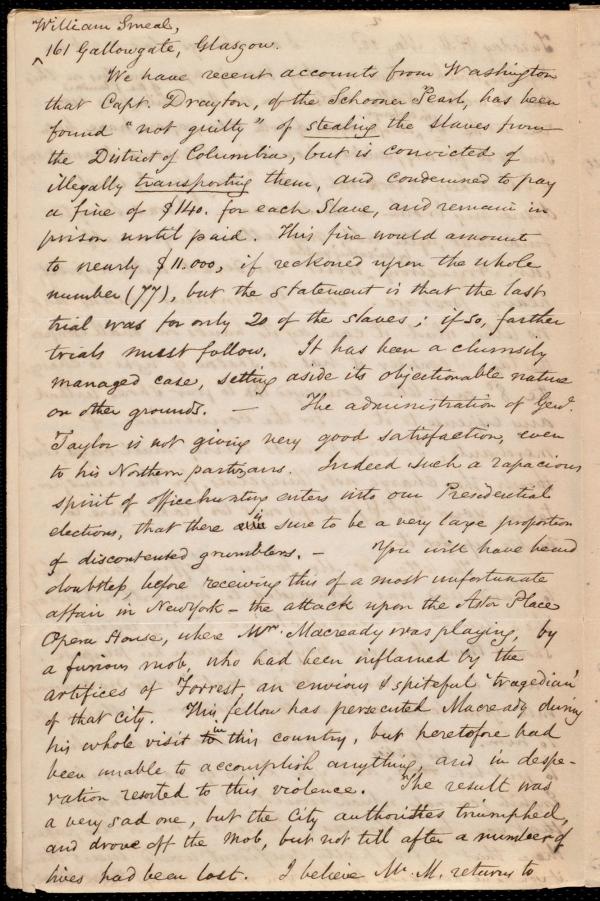 William Smeal,
161 Gallowgate, Glasgow.
We have recent accounts from Washington
that Capt. Drayton, of the Schooner Pearl, has been
found "not guilty" of stealing the slaves from
the District of Columbia, but is convicted of
illegally transporting them, and condemned to pay
a fine of $140. for each Slave, and remain in
prison until paid. This fine would amount
to nearly $11.000, if reckoned upon the whole
number (77), but the statement is that the last
trial was for only 20 of the slaves; if so, farther
trials must follow. It has been a clumsily
managed case, setting aside its objectionable nature
on other grounds. — The administration of Genl.
Taylor is not giving very good satisfaction, even
to his Northern partizans. Indeed such a rapacious
spirit of officehunting enters into our Presidential
elections, that there is sure to be a very large proportion
of discontented grumblers. — You will have heard
doubtless, before receiving this of a most unfortunate
affair in New York – the attack upon the Astor Place
Opera House, where Mr. Macready was playing, by
a furious mob, who had been inflamed by the
artifices of Forrest, an envious & spiteful 'tragedian'
of that city. This fellow has persecuted Macready during
his whole visit in this country, but heretofore had
been unable to accomplish anything, and in despe-
ration resorted to this violence. The result was
a very sad one, but the City authorities triumphed,
and drove off the mob, but not till after a number of
lives had been lost. I believe Mr. M. returns to